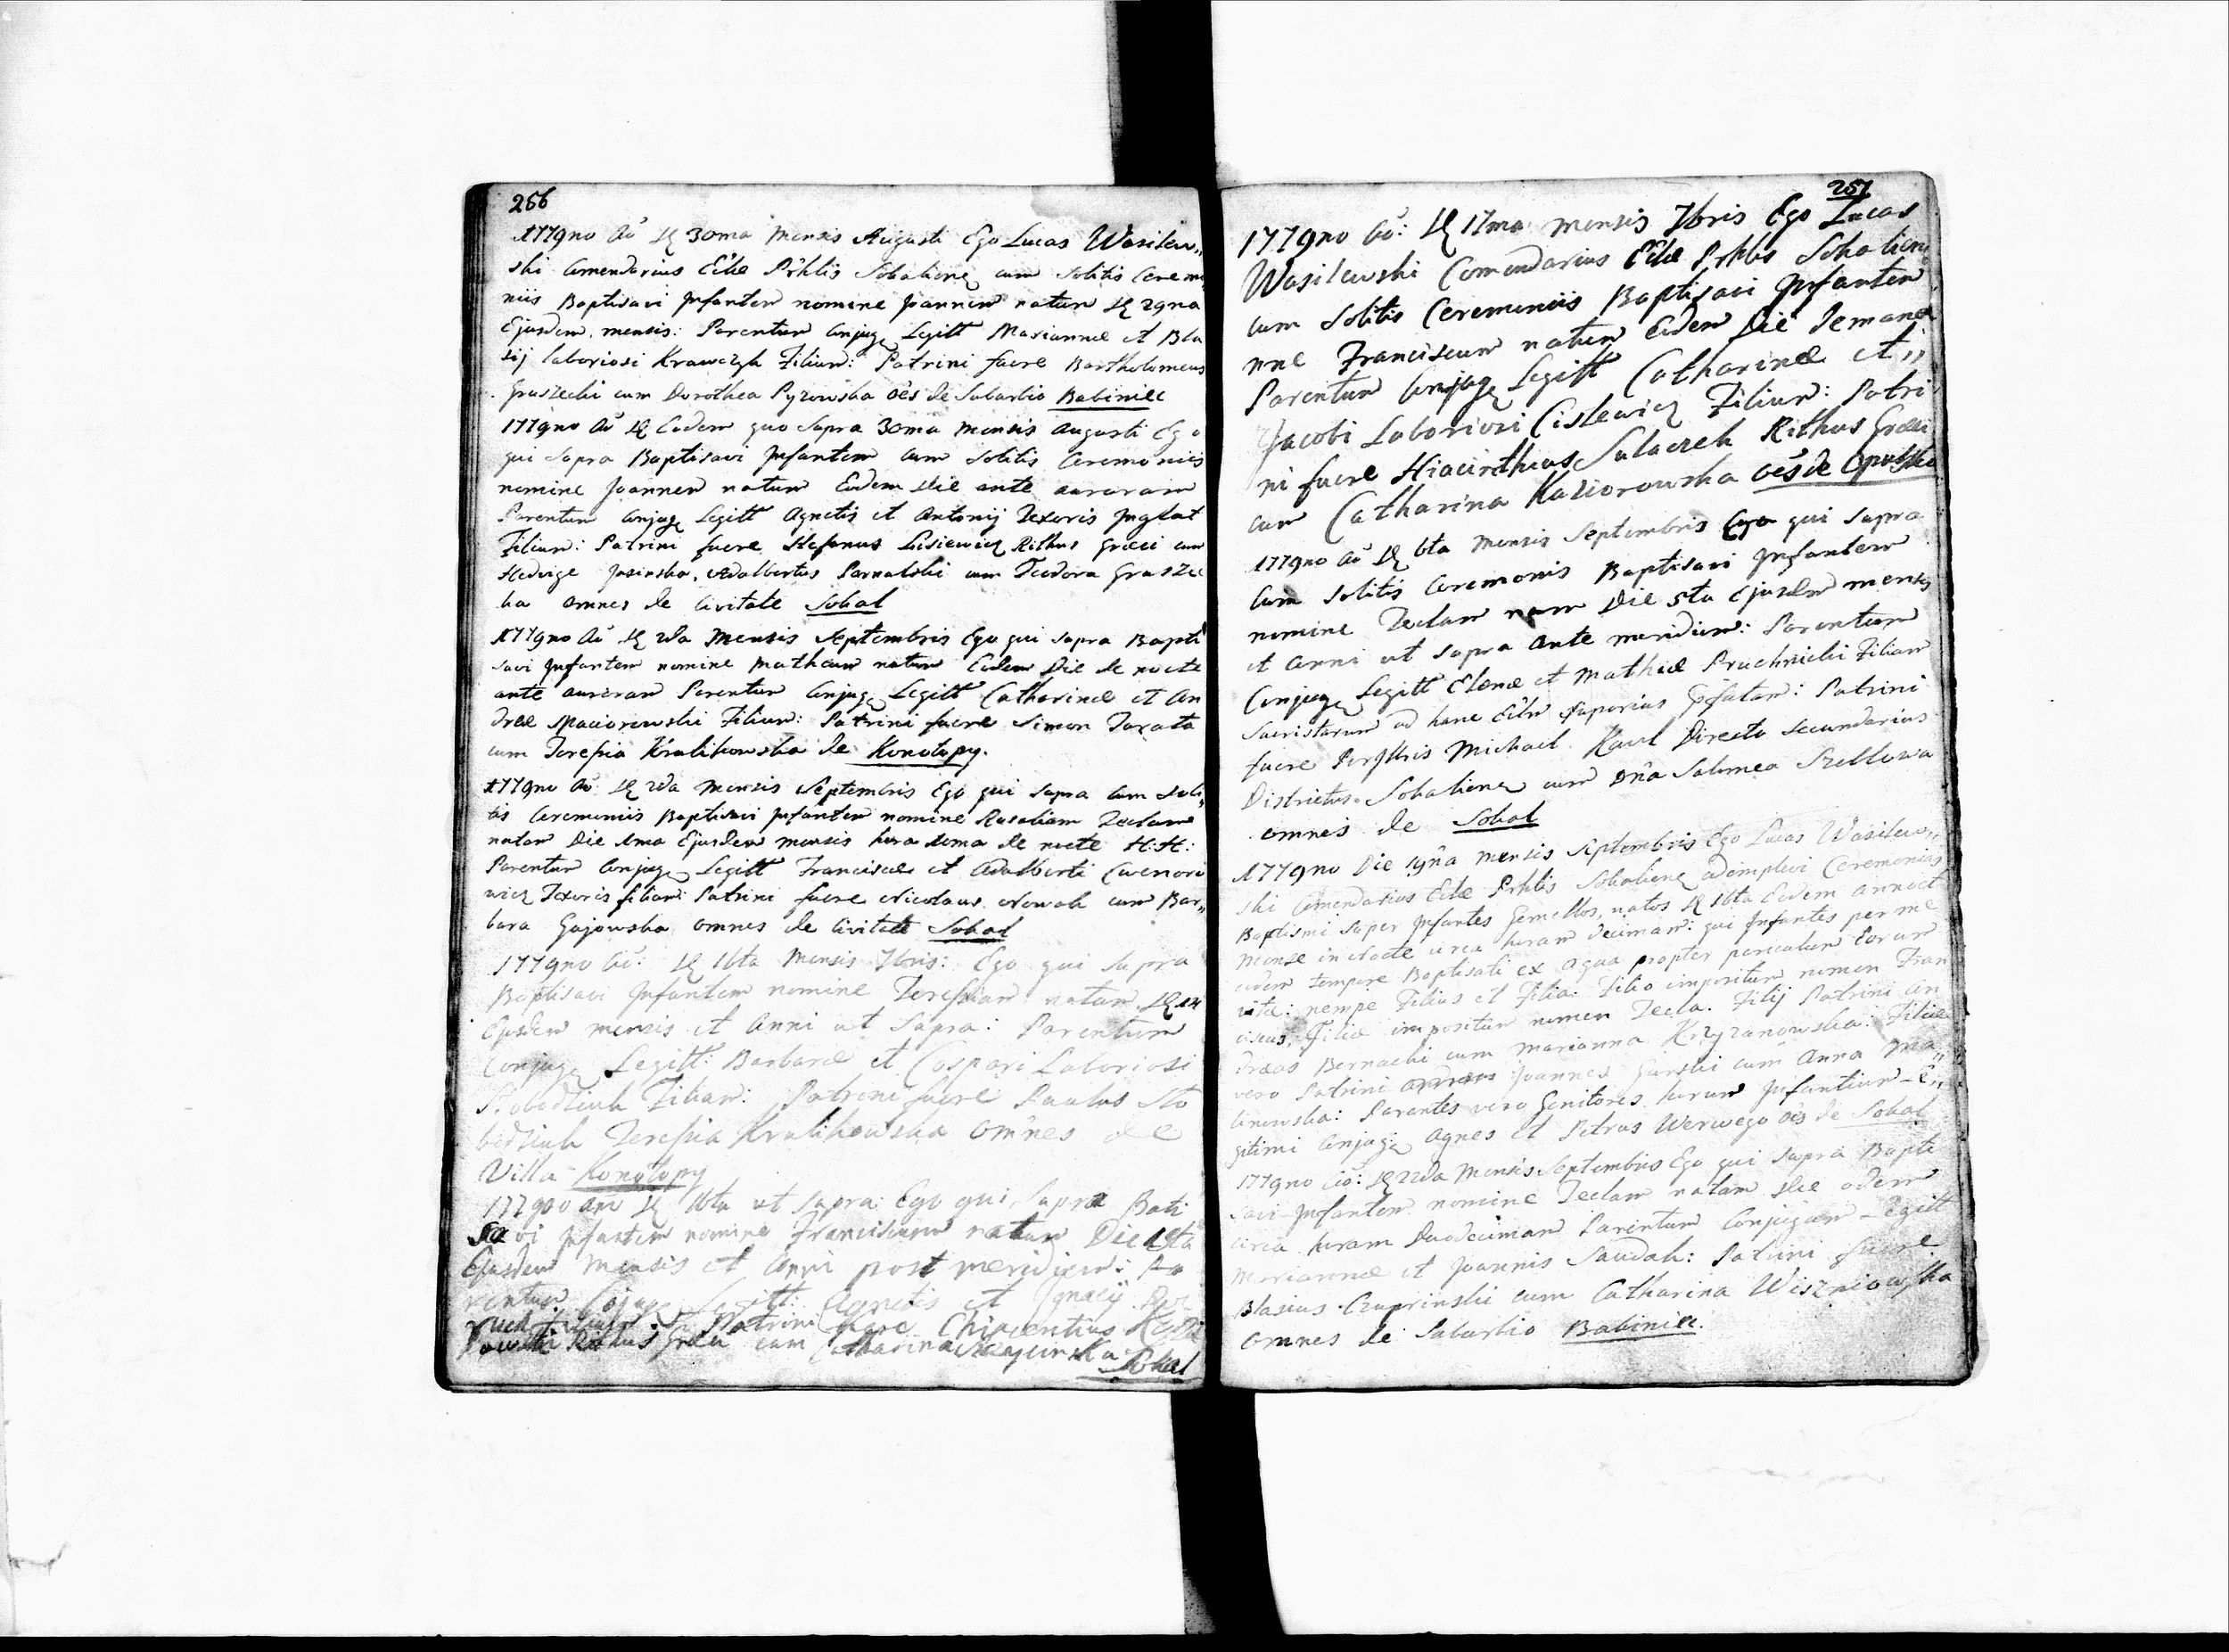 256
1779no Aō d 30ma Mensis Augusti Ego Lucas Wasilew„
ski Comendarius Ecłae Prhlis Sokaliens cum solitis Ceremo
niis Baptisavi Infantem nomine Joannem natum d 29na
Ejusdem mensis: Parentum Conjug Legitt Mariannæ et Bla
sij laboriosi Krawczyk Filium: Patrini fuere Bartholomeus
Graszecki cum Dorothea Pyzowska oēs de Suburbio Babiniec
1779no Aō d Eadem quo supra 30ma Mensis Augusti Ego
qui supra Baptisavi Infantem cum solitis Ceremoniis
nomine Joannem natum Eadem die ante auroram
Parentum Conjug Legitt Agnetis et Antonij Textoris
Filium: Patrini fuere Stefanus Lisiewicz Rithus Græci cum
Hedvige Jasinska, Adalbertus Parnalski cum Teodora Grasze
ka omnes de Civitate Sokal
1779no Aō d 2da Mensis Septembris Ego qui supra Bapti
savi Infantem nomine Matheum natum Eadem Die de nocte
ante auroram Parentum Conjug Legitt Catharinæ et An
dreæ Maciorowski Filium: Patrini fuere Simon Taxata
cum Teressia Kralikowska de Konotopy.
1779no Aō d 2da Mensis Septembris Ego qui supra Cum Soli„
tis Ceremoniis Baptisavi Infantem nomine Rosaliam Teclam
natam Die 1ma Ejusdem mensis hora de nocte
Parentum Conjug Legitt Franciscæ et Adalberti
wicz Textoris filiam: Patrini fuere Nicolaus Nowak cum Bar„
bara Gajowska omnes de Civitate Sokal
1779no Aō: d 16ta Mensis 7bris: Ego qui supra
Baptisavi Infantem nomine Teressiam natam
Ejusdem mensis et Anni ut supra: Parentum
Conjug Legitt: Barbaræ et Caspari Laboriosi
Slobodziuk Filiam: Patrini fuere Paulus Slo
bodziuk Teressia Kralikowska omnes de
Villa Konotopy
1779no Aō d 16ta ut supra: Ego qui supra Bati
sa vi Infantem nomine Franciscum natum Die
Ejusdem Mensis et Anni post meridiem: Pa
rentum Conjug Legitt: Agnetis et Ignacij
Filium: Patrini fuere
Rithus Græci cum Catharina
Sokal
257
1779no Aō: d 17ma mensis 7bris Ego Lucas
Wasilewski Comendarius Ecłæ Prhlis Sokaliens
cum solitis Ceremoniis Baptisavi Infantem
nne Franciscum natum Eadem Die de mane
Parentum Conjug Legitt Catharinæ et„
Jacobi Laboriosi Cislewicz Filium: Patri
ni fuere Hiacinthus Sulaczek Rithus Græci
cum Catharina Kaziorowska oēs de Opulsko
1779no Aō d 6ta Mensis Septembris Ego qui supra
Cum solitis Ceremonis Baptisavi Infantem
nomine Teclam Die 5ta Ejusdem mensis
et Anni ut supra Ante meridiem: Parentum
Conjug Legitt Elenæ et Mathiæ Pruchnicki Filiam
ad hanc Patrini
fuere Michael Directo secundarius
Districtus Sokaliens cum Dna Salomea
omnes de Sokal
1779no Die 19na Mensis Septembris Ego Lucas Wasilew„
ski Comendarius Ecłæ Prhlis Sokaliens adimplevi Ceremonias
Baptismi super Infantes Gemellos, natos d 16ta Eadem anno et
Mense in Nocte circa horam decimam: qui Infantes per me
eodem tempore Baptisati ex aqua propter periculum Eorum
vitæ: nempe Filius et Filia: Filio impositum nomen Fran
ciscus, Filiæ impositum nomen Tecla. Filij Patrini An
dreas Bernacki cum Marianna Krzyzanowska: Filiæ
vero Patrini Joannes Gurski cum Anna Ma„
linowska: Parentes vero Genitores horum Infantium Le„
gitimi Conjug Agnes et Petrus Werwego oēs de Sokal
1779no Aō: d 22da Mensis Septembris Ego qui supra Bapti
savi Infantem nomine Teclam natam die
circa horam Duodecimam Parentum Conjugum Legitt
Mariannæ et Joannis Saudak: Patrini fuere
Blasius Czuprinski cum Catharina Wiszniowska
omnes de Suburbio Babiniec.